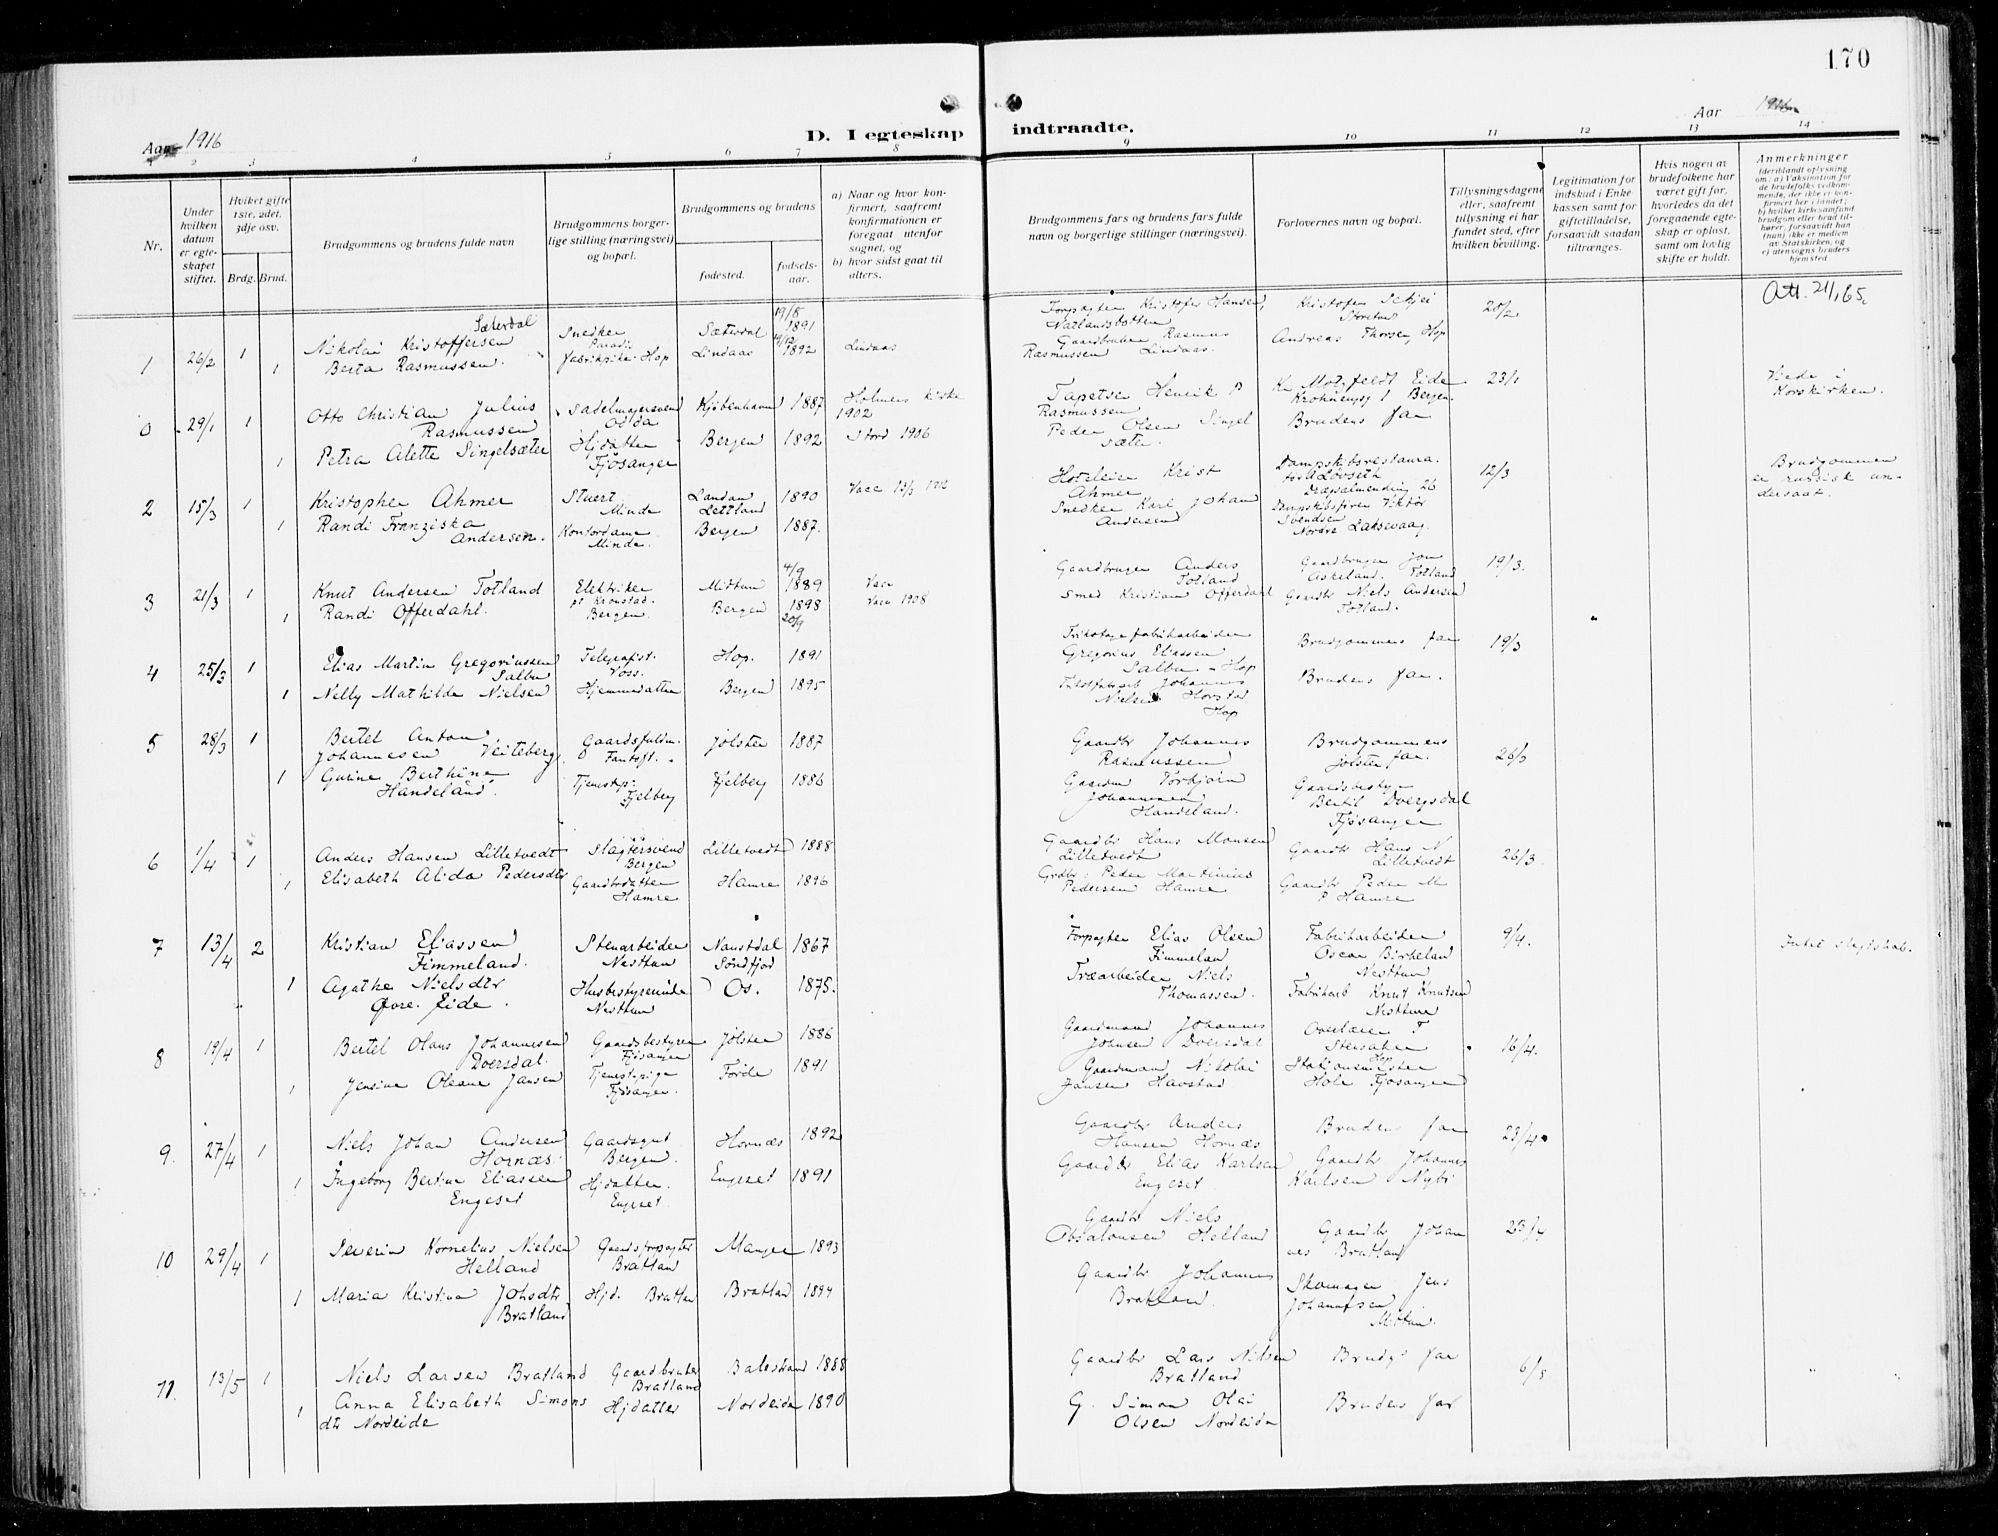 170
Aar 1916
D. I egteskap indtraadte.
Aar 1916
1 2 3 4 5 6 7 8 9 10 11 12 13 14
Nr.
Under hvilken datum er egteskapet stiftet.
Hviket gifte 1ste, 2det, 3dje osv.
Brdg. Brud.
Brudgommens og brudens fulde navn
Brudgommens borgerlige stilling (næringsvei) og bopæl.
Brudgommens og brudens
fødested.
fødselsaar.
a) Naar og hvor konfirmert, saafremt konfirmationen er foregaat utenfor sognet, og
b) hvor sidst gaat til alters.
Brudgommens fars og brudens fars fulde navn og borgerlige stillinger (næringsvei).
Forlovernes navn og bopæl.
Tillysningsdagene eller, saafremt tillysning ei har fundet sted, efter hvilken bevilling.
Legitimation for indskud i Enkekassen samt for giftetilladelse, forsaavidt saadan tiltrænges.
Hvis nogen av brudefolkene har været gift før, hvorledes da det foregaaende egteskap er opløst, samt om lovlig skifte er holdt.
Anmerkninger
(deriblandt oplysning om: a) Vaksination for de brudefolks vedkommende, der ikke er konfirmert her i landet; b) hvilket kirkesamfund brudgom eller brud tilhører, forsaavidt han (hun) ikke er medlem av Statskirken, og c) utensogns bruders hjemsted.
1 26/2 1 Nikolai Kristoffersen Sæterdal Snedker Paradis Sæterdal 19/8 1891 Forpagter Kristofer Hansen, Natlandsbotten Kristofer Schjei Storetun 20/2 Att. 21/1 65.
1 Berta Rasmussen. fabrikpike Hop Lindaas 1892 Lindaas Gaardbruker Rasmus Rasmussen Lindaas. Andreas Thorsen Hop
0 29/1 1 Otto Christian Julius Rasmussen Sadelmagersvend Odda Kjöbenhavn 1887 Holmens kirke 1902 Tapetser Henrik P Rasmussen Kr Motzfeldt Eide Krohnengsg 1 Bergen. 23/1 Viede i Korskirken.
1 Petra Alette Singelsæter Hjdatter Fjösanger Bergen 1892 Stord 1906 Peder Olsen Singelsæter. Brudens far
2 15/3 1 Kristopher Ahmer Stuert Minde Landau Lettland 1890 Vacc 13/3 1916 Hoteleier Krist Ahmer Dampskibsrestauratør A Løvseth Drægsalmending 26 12/3 Brudgommen er russisk undersaat.
1 Randi Franziska Andersen. Kontordame Minde. Bergen 1887. Snedker Karl Johan Andersen Dampskibsfører Viktor Svendsen Nordre Laksevaag.
3 21/3 1 Knut Andersen Totland Elektriker pt Kronstad. Midtun 4/9 1889 Vacc Gaardbruger Anders Totland Gaardbruger Jon Askeland. Totland 19/3.
1 Randi Offerdahl. Bergen. Bergen 1898 20/9 Vacc 1908 Smed Kristian Offerdahl Gaardbr Niels Andersen Totland.
4 25/3 1 Elias Martin Gregoriussen Salbu Telegrafist. Voss. Hop. 1891 Trikotagefabrikarbeider Gregorius Eliassen Salbu - Hop Brudgommens far 19/3
1 Nelly Mathilde Nielsen Hjemmedatter Bergen 1895 Johannes Nielsen Hop Brudens far.
5 28/3 1 Bertel Anton Johannesen Veiteberg Gaardsfuldm. Fantoft. Jølster 1887 Gaardbr Johannes Rasmussen Brudgommens far. Jølster 26/3
1 Gurine Berthine Handeland. Tjenestepi: Fjelberg Fjelberg 1886 Gaardm Torbjørn Johannesen Handeland. Gaardsbestyr Bertil Dvergsdal Fjøsanger
6 1/4 1 Anders Hansen Lilletvedt Slagtersvend Bergen Lilletvedt 1888 Gaardbr Hans Monsen Lilletvedt Gaardb Hans N Lilletvedt 26/3
1 Elisabeth Alida Pedersdtr Gaardbrdatter Hamre Hamre 1896 Grdbr: Peder Martinius Pedersen Hamre Gaardbr Peder M P Hamre
7 13/4 2 Kristian Eliassen Fimmeland. Stenarbeider Nesttun Naustdal Söndfjord 1867 Forpagter Elias Olsen Fimmelan Fabrikarbeider Oscar Birkeland Nesttun 9/4. Intet slegtskab.
1 Agathe Nielsdtr Øvre. Eide. Husbestyrerinde Nesttun Os. 1875. Træarbeider Niels Thomassen. Fabrikarb Knut Knutsen Nesttun
8 19/4 1 Bertel Olaus Johannesen Dversdal. Gaardsbestyrer Fjösanger Jølster 1886 Gaardmand Johannes Johnsen Dversdal Overlærer F Stersater Hop 16/4.
1 Jensine Oleane Jansen Tjenestepige Fjøsanger. Førde 1891 Gaardman Nikolai Jansen Havstad Stationsmester Hole Fjøsanger
9. 27/4 1 Niels Johan Andersen Hornæs. Gaardsgut Bergen. Hornæs 1892 Gaardbr Anders Hansen Hornæs Brudens far 23/4
1 Ingeborg Bertine Eliassen Engeset Hjdatter. Engeset. Engeset 1891 Gaardbr Elias Karlsen Engeset. Gaardbr Johannes Karlsen Nybö
10 29/4 1 Severin Kornelius Nielsen Helland Gaardsforpagter Bratlan Manger 1893 Gaardbr Niels Absalonsen Helland Gaardbr Johannes Bratlan 23/4
1 Maria Kristina Johsdtr Bratland Hjd. Bratlan Bratlan 1894 Gaardbr Johannes Bratland. Skomager Jens Johannesen Mittun.
11. 13/5 1 Niels Larsen Bratland Gaardbruker Bratland Balestrand 1888 Gaardbr Lars Nilsen Bratland Brudgs far 6/5
1 Anna Elisabeth Simonsdtr Nordeide Hjdatter Nordeide 1890 G. Simon Olai Olsen Nordeide Brudens far